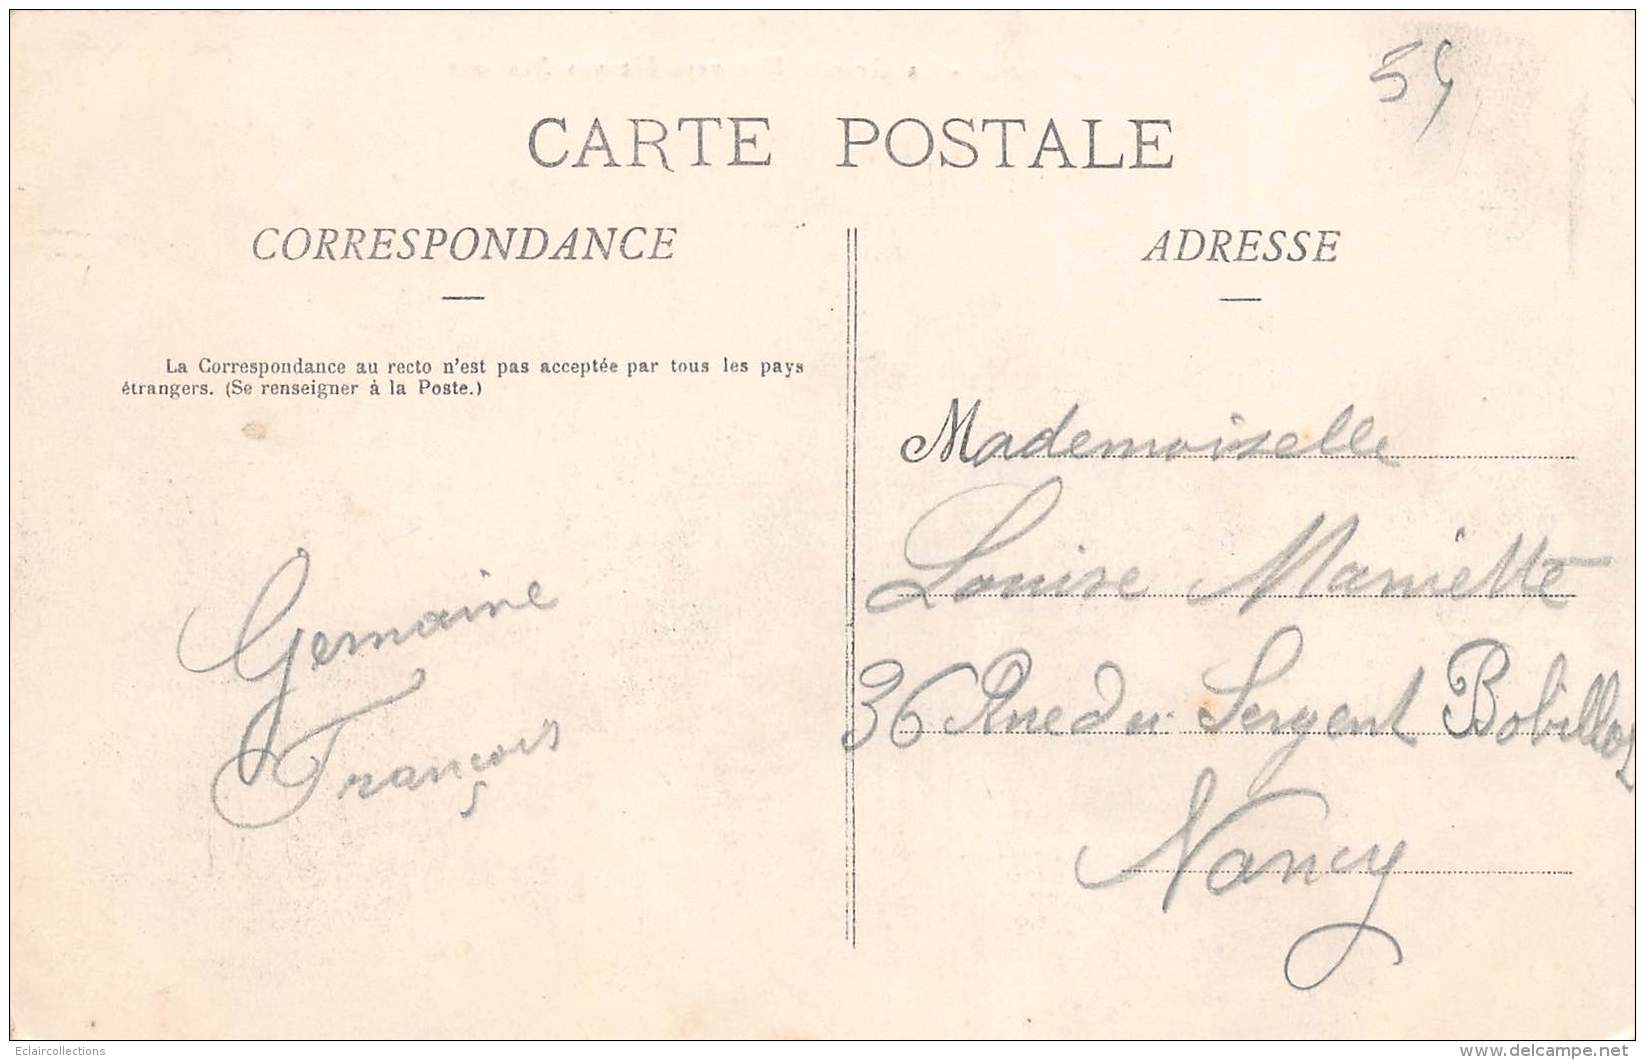 59
CARTE POSTALE
CORRESPONDANCE
ADRESSE
La Correspondance au recto n'est pas acceptée par tous les pays
étrangers. (Se renseigner à la Poste.)
Germaine
François
Mademoiselle
Louise Mariette
36 Rue du Sergent Bobillot
Nancy
Eclaircollections
www.delcampe.net